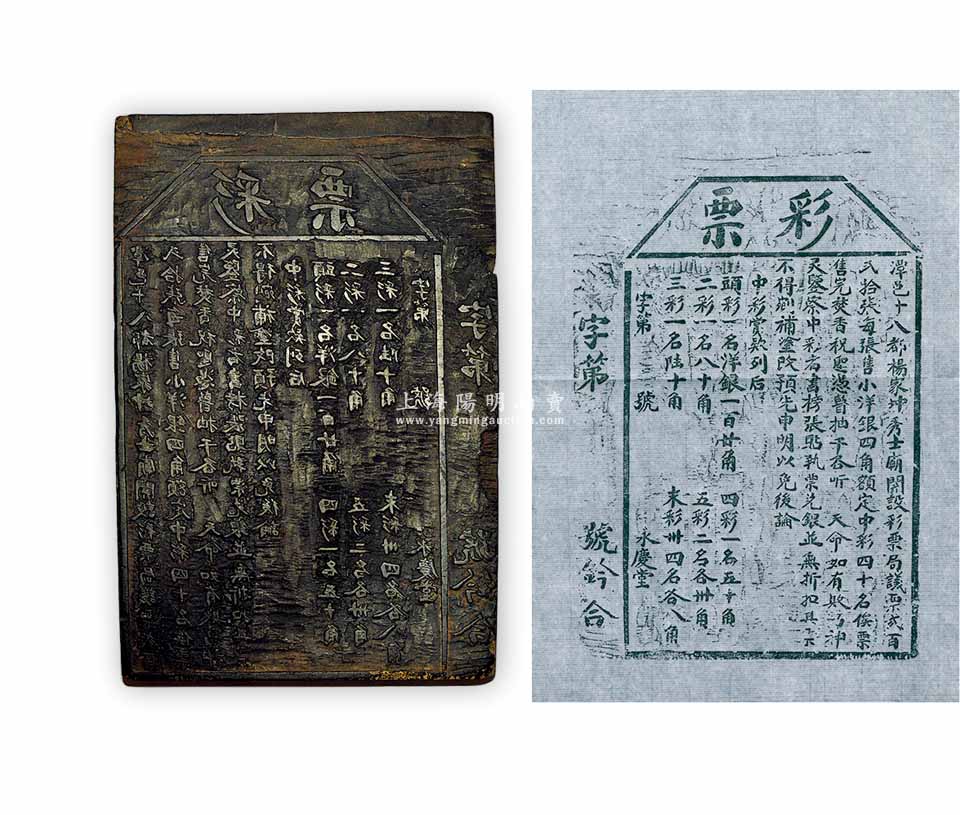 彩票
潭邑十八都楊家坤秀士廟開設彩票局議票弍百
弍拾張每張售小洋銀四角額定中彩四十名俟票
售完焚香祝聖憑瞽抽予各听 天命如有敗污沖
天簽祭中彩名書榜張貼執票兑銀並無折扣其票
不得刮補塗改預先申明以免後論
中彩賞欵列后
頭彩一名洋銀一百廿角 四彩一名五十角
二彩一名八十角 五彩二名各卅角
三彩一名陸十角 末彩卅四名各八角
字第 號 永慶堂
字第 號鈐合
上海陽明拍賣
www.yangmingauction.com